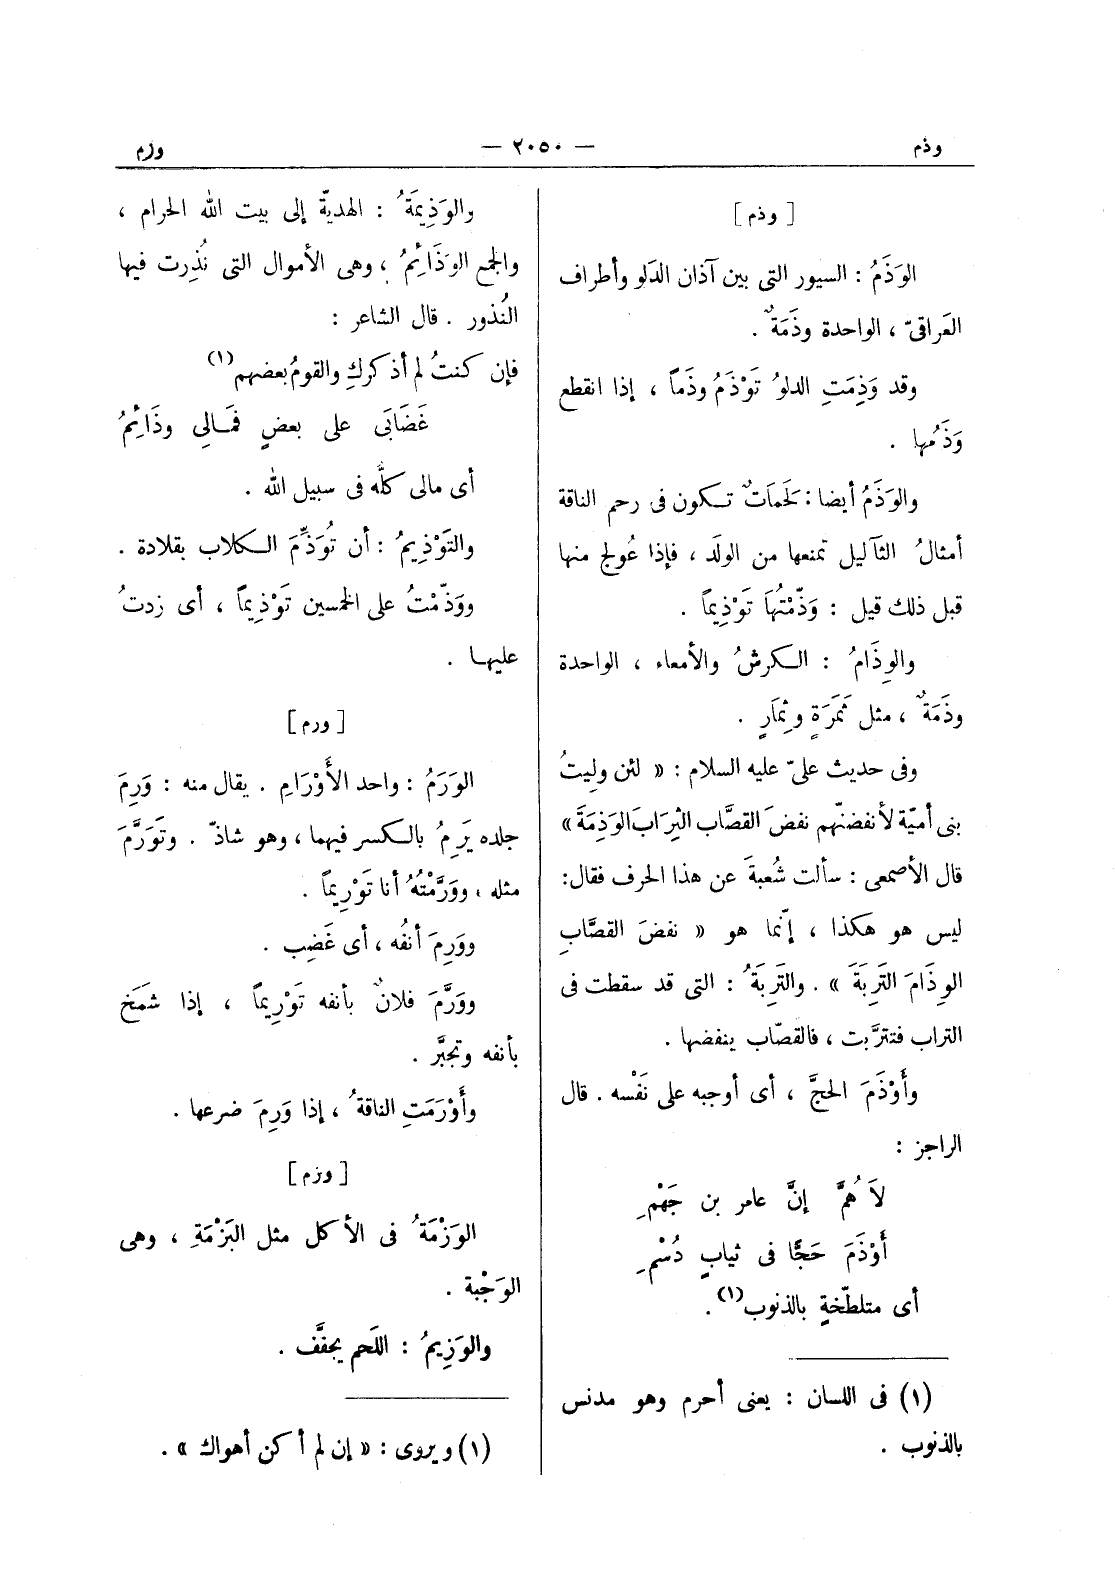 وذم — ٢٠٥٠ — وزم
[ وذم ]
الوَذَمُ : السيور التى بين آذان الدَلو وأطراف
العَراقىّ ، الواحدة وذَمَةٌ .
وقد وَذِمَتِ الدلوُ تَوْذَمُ وذَماً ، إذا انقطع
وَذَمُها .
والوَذَمُ أيضا : لَحَمَاتٌ تكون فى رحم الناقة
أمثالُ الثآليل تمنعها من الولَد ، فإذا عُولج منها
قبل ذلك قيل : وَذَّمْتُهَا تَوْذِيماً .
والوِذَامُ : الكرشُ والأمعاء ، الواحدة
وذَمَةٌ ، مثل ثَمَرَةٍ وثِمَارٍ .
وفى حديث علىّ عليه السلام : « لئن وليتُ
بنى أميّة لأنفضنّهم نفضَ القصَّاب التِرَابَ الوَذِمَةَ »
قال الأصمعى : سألت شُعبةَ عن هذا الحرف فقال:
ليس هو هكذا ، إنّما هو « نفضَ القصَّابِ
الوِذَامَ التَرِبَةَ » . والتَرِبَةُ : التى قد سقطت فى
التراب فتترَّبت ، فالقصّاب ينفضها .
وأَوْذَمَ الحجَّ ، أى أوجبه على نَفْسه . قال
الراجز :
لاَهُمَّ إنَّ عامر بن جَهْمِ
أَوْذَمَ حَجًّا فى ثيابٍ دُسْمِ
أى متلطّخةٍ بالذنوب (١) .
(١) فى اللسان : يعنى أحرم وهو مدنس
بالذنوب .
والوَذِيمَةُ : الهديّة إلى بيت الله الحرام ،
والجمع الوَذَائِمُ ، وهى الأموال التى نُذِرت فيها
النُذور . قال الشاعر :
فإن كنتُ لم أذكركِ والقومُ بعضهم (١)
غَضَابَى على بعضٍ فمَالِى وذَائِمُ
أى مالى كلّه فى سبيل الله .
والتَوْذِيمُ : أن تُوَذِّمَ الكلاب بقلادة .
ووَذّمْتُ على الخمسين تَوْذِيماً ، أى زدتُ
عليها .
[ ورم ]
الوَرَمُ : واحد الأَوْرَامِ . يقال منه : وَرِمَ
جلده يَرِمُ بالكسر فيهما ، وهو شاذّ . وتَوَرَّمَ
مثله ، ووَرَّمْتُهُ أنا تَوْرِيماً .
ووَرِمَ أنفُه ، أى غَضِب .
ووَرَّمَ فلانٌ بأنفه تَوْرِيماً ، إذا شَمَخ
بأنفه وتجبَّر .
وأَوْرَمَتِ الناقةُ ، إذا وَرِمَ ضرعها .
[ وزم ]
الوَزْمَةُ فى الأكل مثل البَزْمَةِ ، وهى
الوَجْبة .
والوَزِيمُ : اللَحم يجفَّف .
(١) ويروى : « إن لم أكن أهواك » .